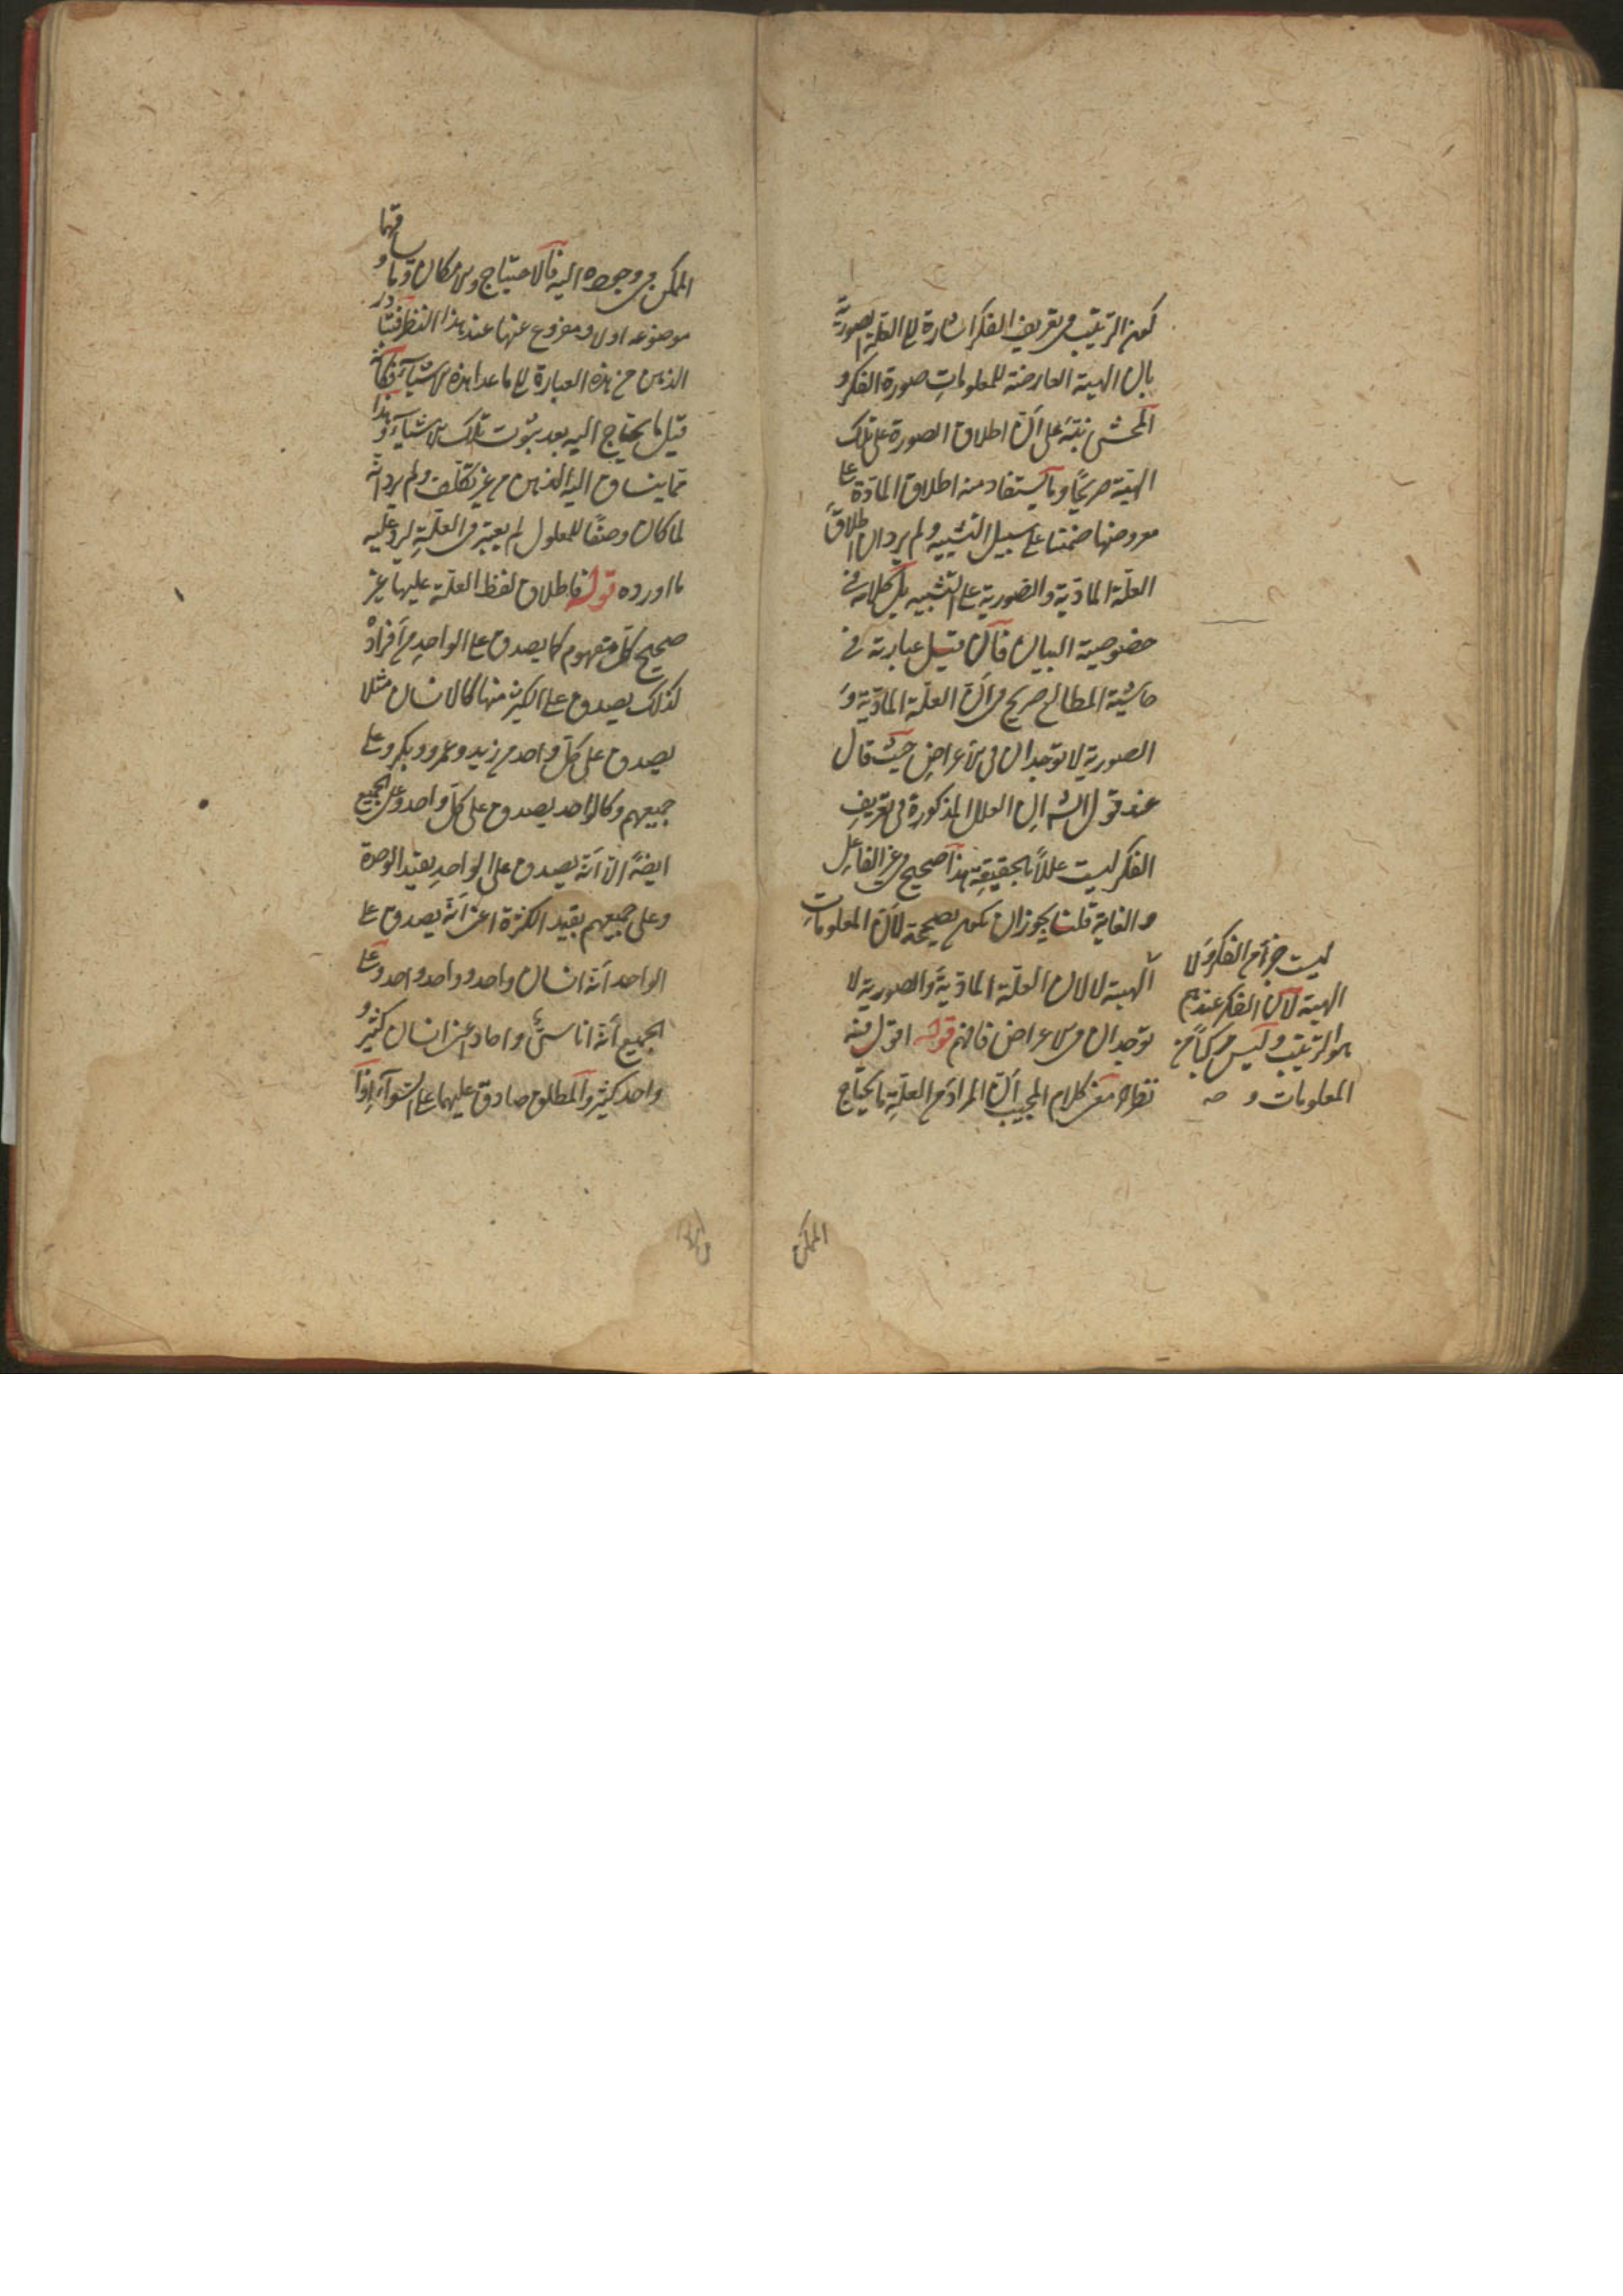 كون الترتيب في تعريف الفكر اشارة الى العلة الصورية
بان الهيئة العارضة للمعلومات صورة الفكر و
المحشى نبّه على أنّ اطلاق الصورة على تلك
الهيئة صريحًا وما يستفاد منه اطلاق المادّة على
معروضها ضمنا على سبيل التشبيه ولم يرد ان اطلاق
العلّة المادّية والصورية على التشبيه بل كلامه في
خصوصية البيان فان قيل عبارته في
حاشية المطالع صريح في أنّ العلّة المادّية و
الصورية لا توجدان في الأعراض حيث قال
عند قول الش ان العلل المذكورة في تعريف
الفكر ليست عللاً بالحقيقة هذا صحيح في غير الفاعل
والغاية قلت يجوز ان يكون صحيحة لأنّ المعلومات
ليست جزأ من الفكر ولا
الهيئة لأن الفكر عندهم
هو الترتيب وليس مركبًا من
المعلومات و صه
الهيئة لا لان العلّة المادّية والصورية لا
توجدان في الاعراض فافهم قوله اقول فيه
نظر الخ معنى كلام المجيب أنّ المراد من العلّة ما يحتاج
الممكن
الممكن في وجوده اليه فالاحتياج والامكان وما
يساوقهما
موضوعه اولا ومفروع عنها عند هذا النظر فيتبادر
الذهن من هذه العبارة الى ما عدا هذه الاشياء فكأنّه
قيل ما يحتاج اليه بعد ثبوت تلك الاشياء وهذا
ممّا ينساق اليه الذهن من غير تكلّف ولم يرد انّه
لما كان وصفًا للمعلول لم يعتبر في العلّة ليرد عليه
ما اورده قوله فاطلاق لفظ العلّة عليها غير
صحيح كلّ مفهوم كما يصدق على الواحد من أفراده
كذلك يصدق على الكثير منها كالانسان مثلا
يصدق على كلّ واحد من زيد وعمرو وبكر وعلى
جميعهم وكالواحد يصدق على كلّ واحد وعلى الجميع
ايضًا الّا أنّه يصدق على الواحد بقيد الوحدة
وعلى جميعهم بقيد الكثرة اعنى أنّه يصدق على
الواحد أنّه انسان واحد وواحد واحد وعلى
الجميع أنّه اناسىّ وآحاد اعنى انسان كثير و
واحد كثير والمطلق صادق عليهما على السّواء اذا